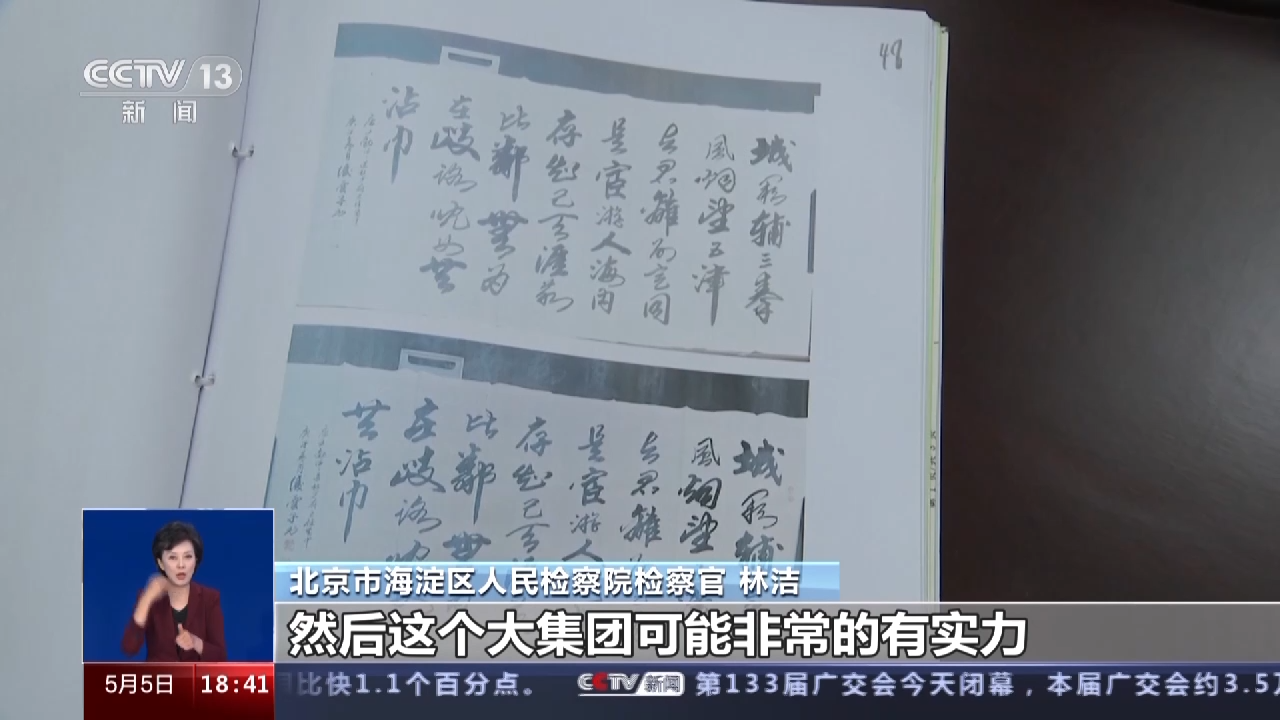 CCTV 13
新闻
48
城闕輔三秦
風烟望五津
与君離別意同
是宦游人海内
存知己天涯若
比鄰無为
在歧路児女共
沾巾
城闕輔
風烟望
与君離
是宦游人
存知己天涯
比鄰無
在歧路児
共沾巾
北京市海淀区人民检察院检察官 林洁
然后这个大集团可能非常的有实力
5月5日 18:41 比快1.1个百分点。 CCTV新闻 第133届广交会今天闭幕，本届广交会约3.5